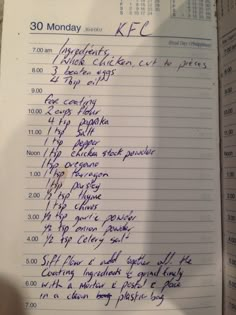 30 Monday KFC
7.00 am Ingredients
1 whole chicken, cut to pieces
8.00 3 beaten eggs
4 Tbsp oil
9.00
For coating
10.00 2 cups flour
4 tsp paprika
11.00 1 tsp salt
1 tsp pepper
Noon 1 tsp chicken stock powder
1 tsp oregano
1.00 1 tsp tarragon
1 tsp parsley
2.00 1 tsp thyme
1 tsp chives
3.00 ½ tsp garlic powder
½ tsp onion powder
4.00 ½ tsp celery salt
5.00 Sift flour & add together all the
coating ingredients & grind finely
6.00 with a mortar & pestle & place
in a clean plastic bag